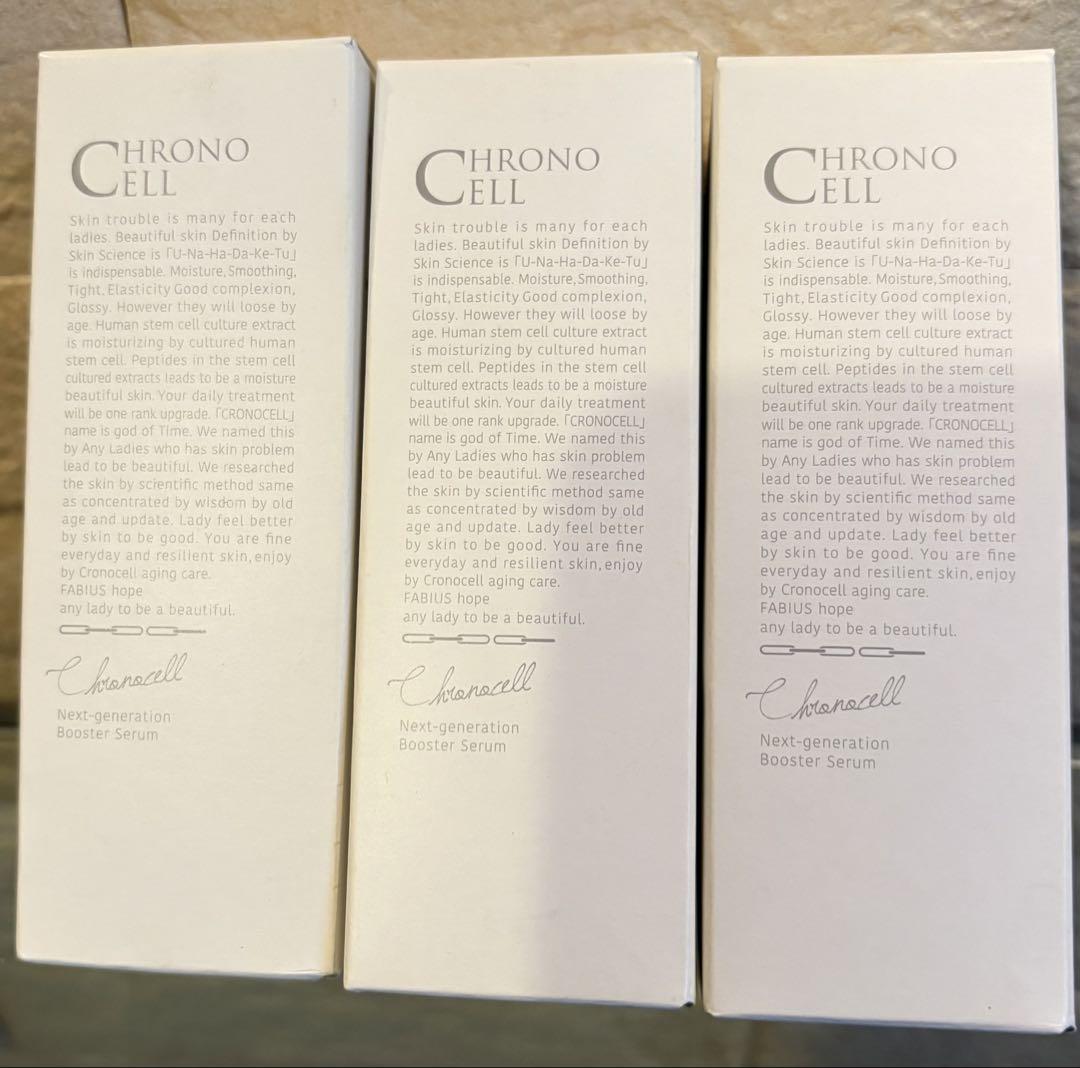 CHRONO
CELL
Skin trouble is many for each
ladies. Beautiful skin Definition by
Skin Science is「U-Na-Ha-Da-Ke-Tu」
is indispensable. Moisture,Smoothing,
Tight, Elasticity Good complexion,
Glossy. However they will loose by
age. Human stem cell culture extract
is moisturizing by cultured human
stem cell. Peptides in the stem cell
cultured extracts leads to be a moisture
beautiful skin. Your daily treatment
will be one rank upgrade.「CRONOCELL」
name is god of Time. We named this
by Any Ladies who has skin problem
lead to be beautiful. We researched
the skin by scientific method same
as concentrated by wisdom by old
age and update. Lady feel better
by skin to be good. You are fine
everyday and resilient skin, enjoy
by Cronocell aging care.
FABIUS hope
any lady to be a beautiful.
Chronocell
Next-generation
Booster Serum
CHRONO
CELL
Skin trouble is many for each
ladies. Beautiful skin Definition by
Skin Science is「U-Na-Ha-Da-Ke-Tu」
is indispensable. Moisture,Smoothing,
Tight, Elasticity Good complexion,
Glossy. However they will loose by
age. Human stem cell culture extract
is moisturizing by cultured human
stem cell. Peptides in the stem cell
cultured extracts leads to be a moisture
beautiful skin. Your daily treatment
will be one rank upgrade.「CRONOCELL」
name is god of Time. We named this
by Any Ladies who has skin problem
lead to be beautiful. We researched
the skin by scientific method same
as concentrated by wisdom by old
age and update. Lady feel better
by skin to be good. You are fine
everyday and resilient skin, enjoy
by Cronocell aging care.
FABIUS hope
any lady to be a beautiful.
Chronocell
Next-generation
Booster Serum
CHRONO
CELL
Skin trouble is many for each
ladies. Beautiful skin Definition by
Skin Science is「U-Na-Ha-Da-Ke-Tu」
is indispensable. Moisture,Smoothing,
Tight, Elasticity Good complexion,
Glossy. However they will loose by
age. Human stem cell culture extract
is moisturizing by cultured human
stem cell. Peptides in the stem cell
cultured extracts leads to be a moisture
beautiful skin. Your daily treatment
will be one rank upgrade.「CRONOCELL」
name is god of Time. We named this
by Any Ladies who has skin problem
lead to be beautiful. We researched
the skin by scientific method same
as concentrated by wisdom by old
age and update. Lady feel better
by skin to be good. You are fine
everyday and resilient skin, enjoy
by Cronocell aging care.
FABIUS hope
any lady to be a beautiful.
Chronocell
Next-generation
Booster Serum